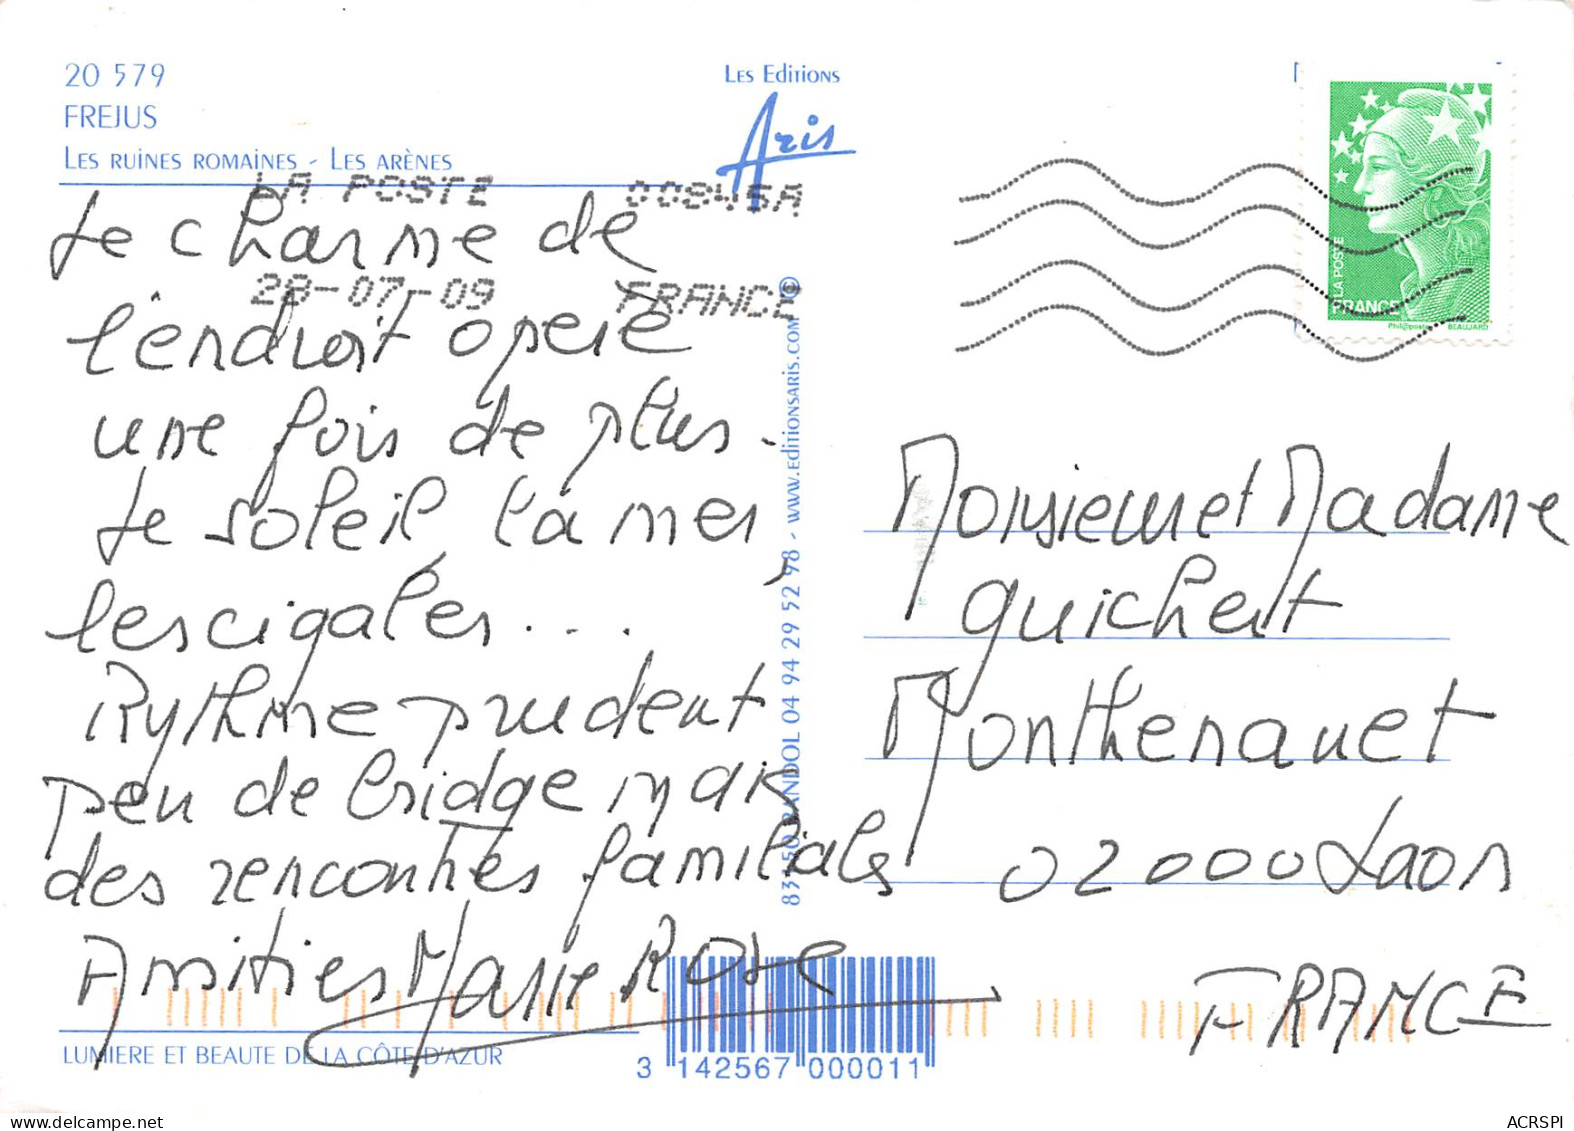 20 579
FREJUS
Les ruines romaines - Les arènes
Les Editions
Aris
LA POSTE 00845A
28-07-09 FRANCE
Le charme de
l'endroit opère
une fois de plus.
Le soleil, la mer,
les cigales...
Rythme prudent
peu de bridge mais
des rencontres familiales
Amitiés Marie Rose
LUMIERE ET BEAUTE DE LA CÔTE D'AZUR
83150 BANDOL 04 94 29 52 98 - www.editionsaris.com ©
3 142567 000011
LA POSTE
FRANCE
Phil@poste BEAUJARD
Monsieur et Madame
Guichert
Monthenauet
02000 Laon
FRANCE
ACRSPI